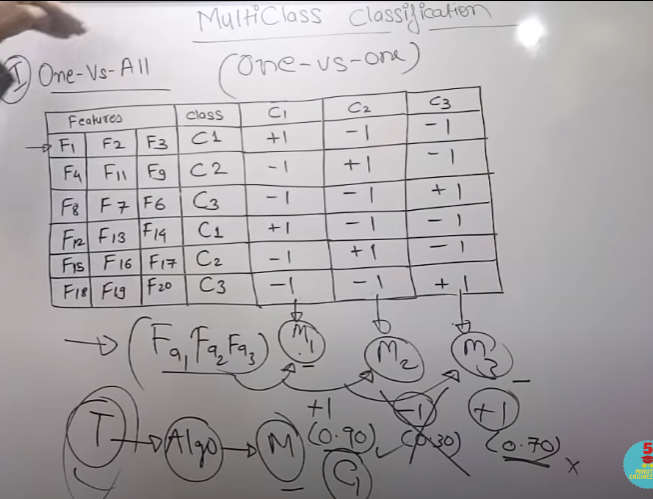 MultiClass Classification
I One-Vs-All (One-vs-one)
Features class C1 C2 C3
F1 F2 F3 C1 +1 -1 -1
F4 F11 F9 C2 -1 +1 -1
F8 F7 F6 C3 -1 -1 +1
F12 F13 F14 C1 +1 -1 -1
F15 F16 F17 C2 -1 +1 -1
F18 F19 F20 C3 -1 -1 +1
(Fa1 Fa2 Fa3) M1 M2 M3
+1 -1 +1
T Algo M (0.90) (0.30) (0.70) x
C1
5
MINUTES
ENGINEERING